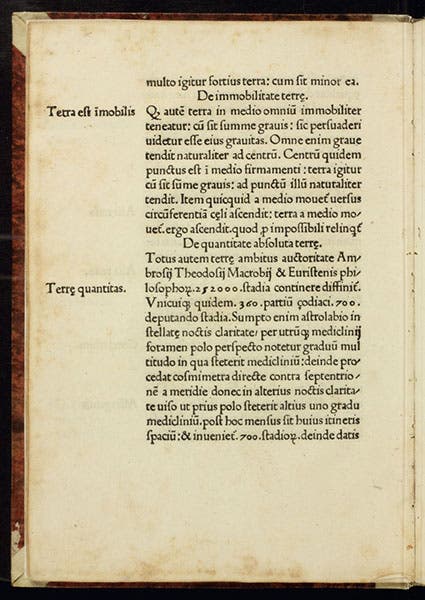 multo igitur fortius terra: cum sit minor ea.
De immobilitate terrę.
Terra est īmobilis
Qꝫ autē terra in medio omniū immobiliter
teneatur: cū sit summe grauis: sic persuaderi
uidetur esse eius grauitas. Omne enim graue
tendit naturaliter ad centrū. Centrū quidem
punctus est ī medio firmamenti: terra igitur
cū sit sūme grauis: ad punctū illū naturaliter
tendit. Item quicquid a medio mouet᷑ uersus
circūferentiā cęli ascendit: terra a medio mo-
uet᷑. ergo ascendit. quod ꝓ impossibili relinqt᷑
De quantitate absoluta terrę.
Totus autem terrę ambitus auctoritate Am
brosij Theodosij Macrobij & Euristenis phi
Terrę quantitas.
losophoꝝ. 252000. stadia continere diffinit᷑.
Vnicuiqꝫ quidem. 360. partiū ʒodiaci. 700.
deputando stadia. Sumpto enim astrolabio in
stellatę noctis claritate: per utrūqꝫ mediclinij
foramen polo perspecto notetur graduū mul
titudo in qua steterit mediclinium: deinde pro
cedat cosmimetra directe contra septentrio-
nē a meridie donec in alterius noctis clarita-
te uiso ut prius polo steterit altius uno gradu
mediclinū. post hoc mensus sit huius itineris
spaciū: & inueniet᷑. 700. stadioꝝ. deinde datis